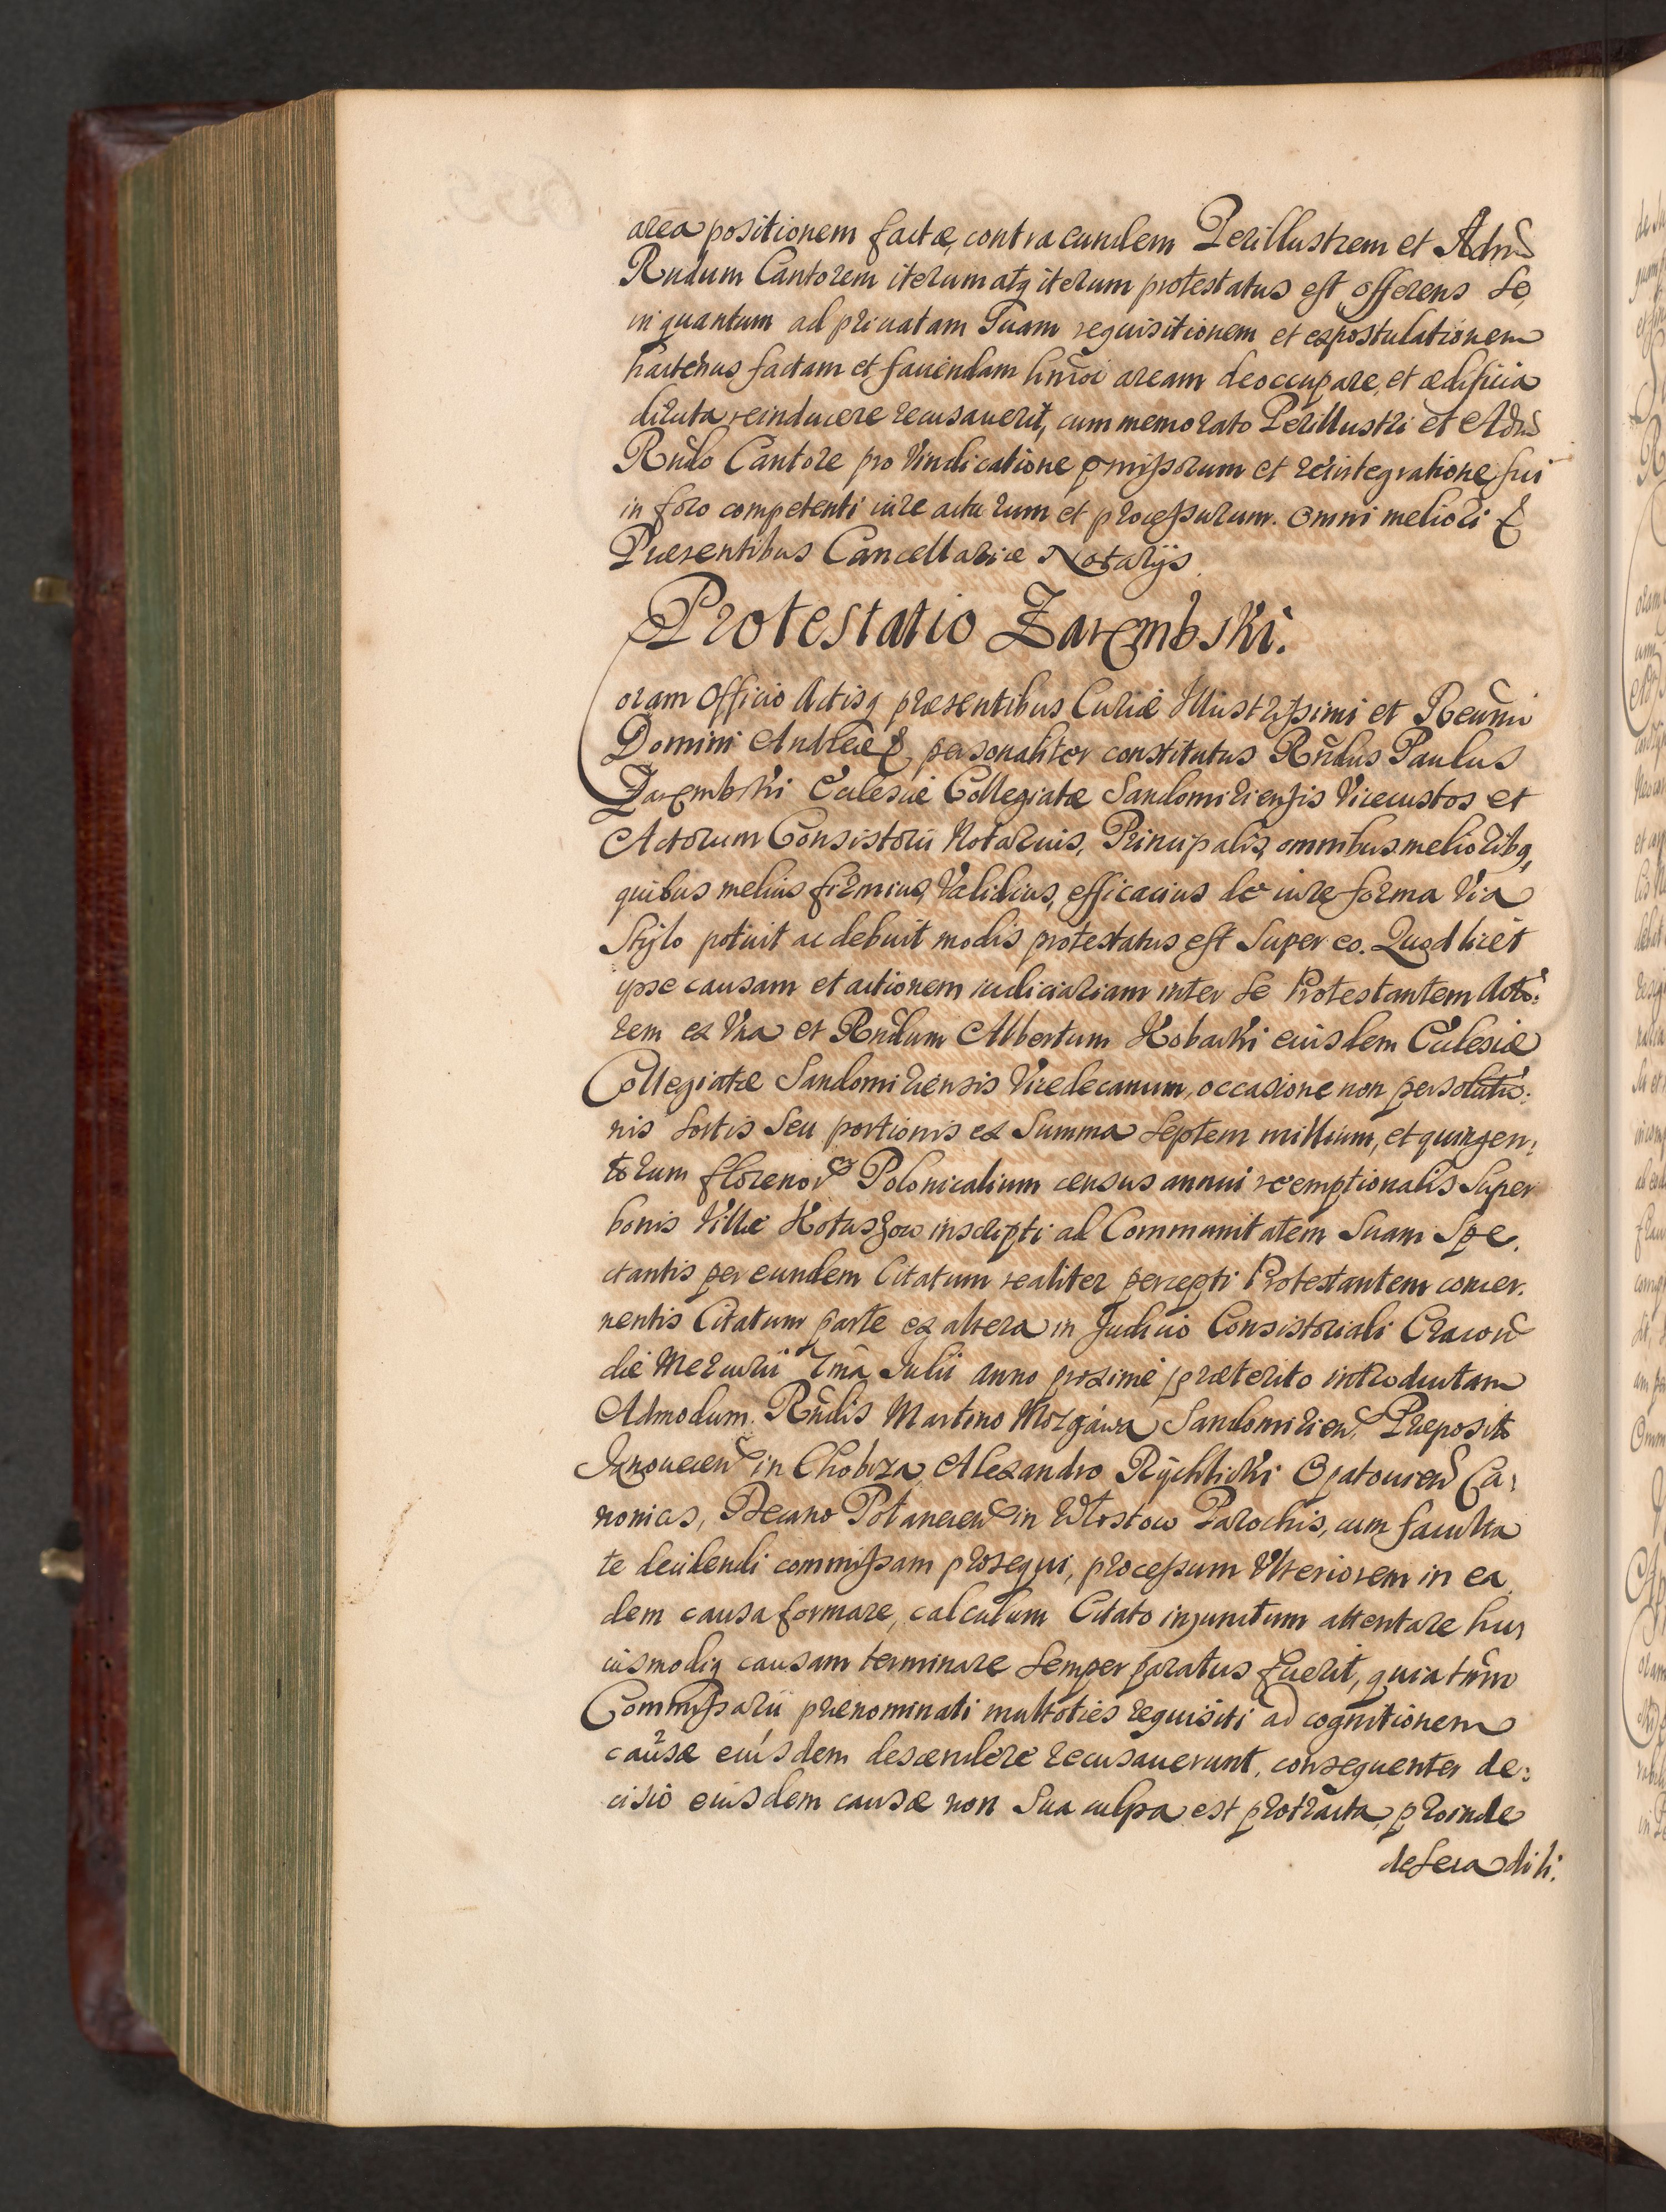 area positionem factæ, contra eundem Perillustrem et Adm̃
Rndum Cantorem iterum atq iterum protestatus est offerens se,
in quantum ad priuatam suam requisitionem et expostulationem
hactenus factam et faciendam hm̃oi aream deoccupare, et ædificia
diruta reinducere recusauerit, cum memorato Perillustri et Adm̃
Rñdo Cantore pro vindicatione pmissorum et reintegratione sui
in foro competenti iure acturum et processurum. Omni meliori &
Præsentibus Cancellariæ Notarijs.
Protestatio Zarembski.
Coram Officio Actisq præsentibus Curiæ Illustrissimi et Reuñmi
Domini Andreæ & personaliter constitutus Rñdus Paulus
Zarembski Ecclesiæ Collegiatæ Sandomiriensis Vicecustos et
Actorum Consistorii Notarius, Principalis, omnibus melioribq,
quibus melius firmius, validius, efficacius de iure forma via
Stylo potuit ac debuit modis protestatus est super eo. Quod licet
ipse causam et actionem iudiciariam inter se Protestantem Acto:
rem ex vna et Rñdum Albertum Kobarski eiusdem Ecclesiæ
Collegiatæ Sandomiriensis Vicedecanum, occasione non persolutio:
nis sortis seu portionis ex summa septem millium, et quingen:
torum florenor Polonicalium census annui reemptionalis super
bonis Villæ Kotuszow inscripti ad Communitatem suam spe.
ctantis per eundem Citatum realiter percepti Protestantem concer.
nentis Citatum parte ex altera in Judicio Consistoriali Cracoñ
die Mercurii 7ma Julii anno proxime præterito introductam
Admodum Rñdis Martino Mozgawa Sandomirieñ. Præposito
in Chobrza, Alexandro Rychlicki Opatouieñ Ca:
nonicis, Decano Połanecieñ in Włostow Parochis, cum faculta
te decidendi commissam prosequi, processum vlteriorem in ea
dem causa formare, calculum Citato injunctum attentare hui
uismodiq causam terminare semper paratus fuerit, quia tam̃
Commissarii prænominati multoties requisiti ad cognitionem
causæ eiusdem descendere recusauerunt, consequenter de:
cisio eiusdem causæ non sua culpa est protracta, proinde